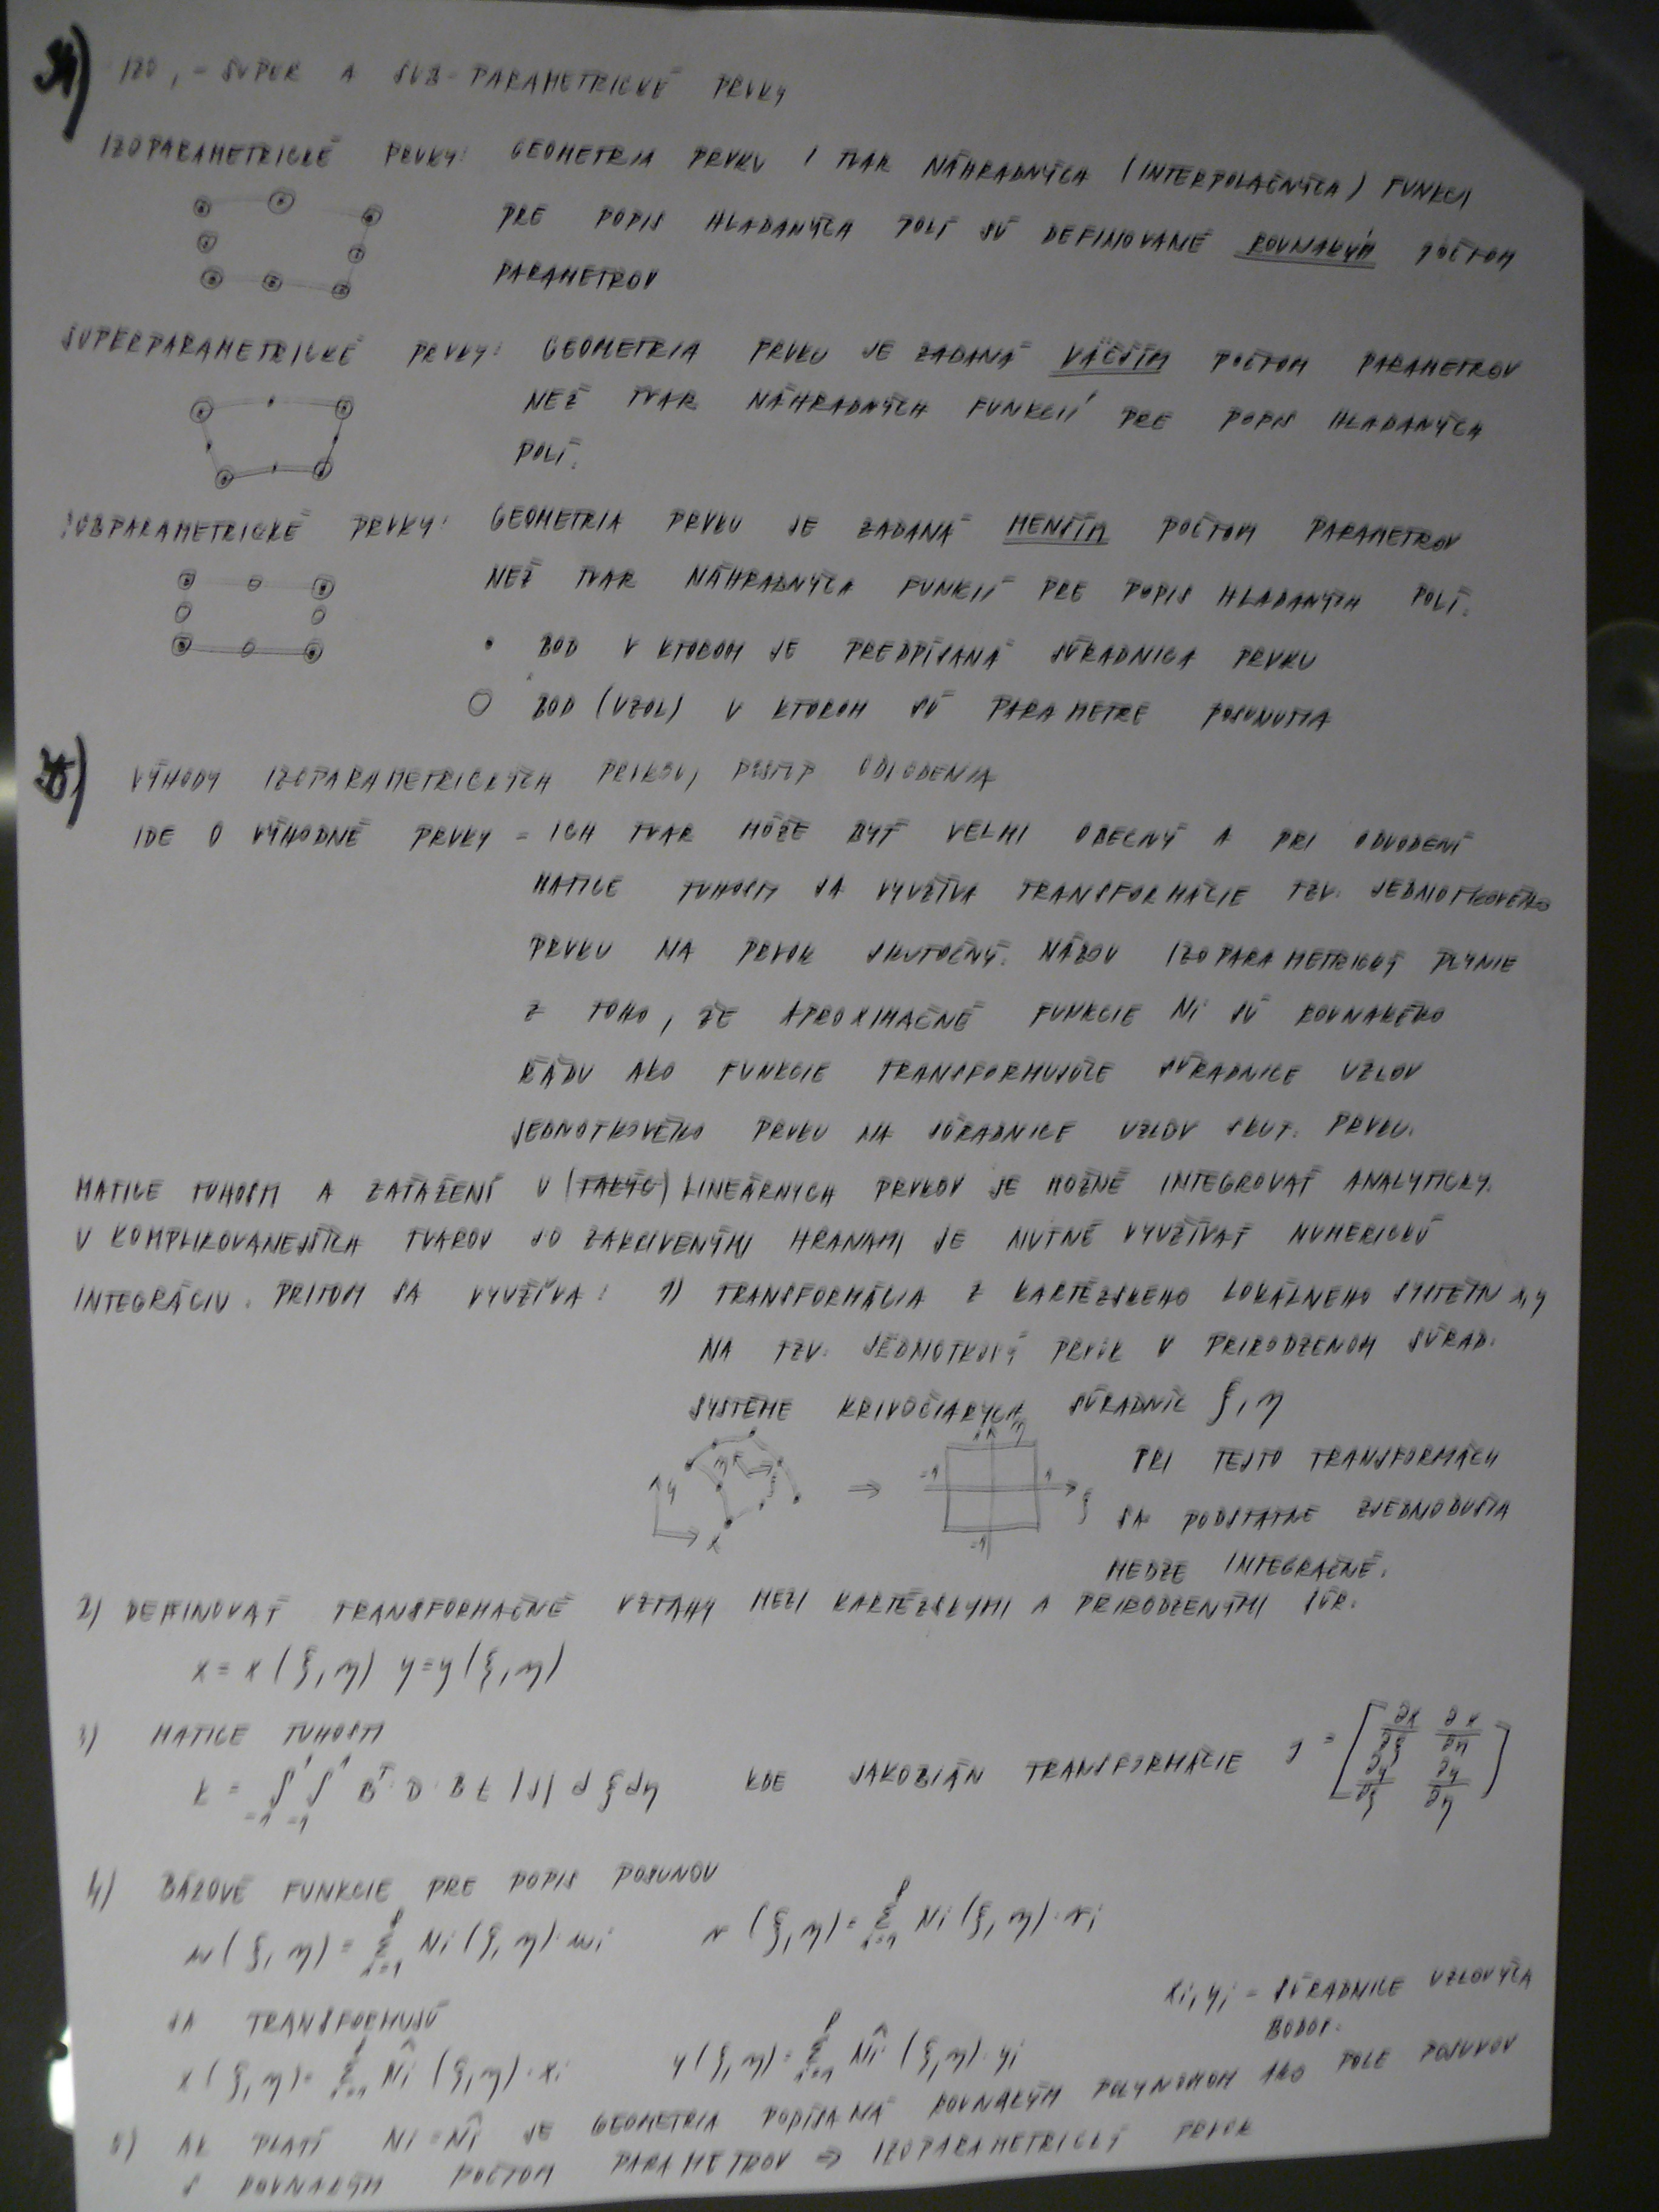 34) IZO, - SUPER A SUB-PARAMETRICKÉ PRVKY
IZOPARAMETRICKÉ PRVKY: GEOMETRIA PRVKU I TVAR NÁHRADNÝCH (INTERPOLAČNÝCH) FUNKCI
PRE POPIS HLADANÝCH POLÍ SÚ DEFINOVANÉ ROVNAKÝM POČTOM
PARAMETROV
SUPERPARAMETRICKÉ PRVKY: GEOMETRIA PRVKU JE ZADANÁ VÄČŠÍM POČTOM PARAMETROV
NEŽ TVAR NÁHRADNÝCH FUNKCIÍ PRE POPIS HLADANÝCH
POLÍ.
SUBPARAMETRICKÉ PRVKY: GEOMETRIA PRVKU JE ZADANÁ MENŠÍM POČTOM PARAMETROV
NEŽ TVAR NÁHRADNÝCH FUNKCIÍ PRE POPIS HLADANÝCH POLÍ.
• BOD V KTOROM JE PREDPÍSANÁ SÚRADNICA PRVKU
○ BOD (UZOL) V KTOROM SÚ PARAMETRE POSUNUTIA
VÝHODY IZOPARAMETRICKÝCH PRVKOV, POSTUP ODVODENIA
IDE O VÝHODNÉ PRVKY - ICH TVAR MÔŽE BYŤ VELMI OBECNÝ A PRI ODVODENÍ
MATICE TUHOSTI SA VYUŽÍVA TRANSFORMÁCIE TZV. JEDNOTKOVÉHO
PRVKU NA PRVOK SKUTOČNÝ. NÁZOV IZOPARAMETRICKÝ PLYNIE
Z TOHO, ŽE APROXIMAČNÉ FUNKCIE Ni SÚ ROVNAKÉHO
RÁDU AKO FUNKCIE TRANSFORMUJÚCE SÚRADNICE UZLOV
JEDNOTKOVÉHO PRVKU NA SÚRADNICE UZLOV SKUT. PRVKU.
MATICE TUHOSTI A ZAŤAŽENÍ U (TAKÝC) LINEÁRNYCH PRVKOV JE MOŽNÉ INTEGROVAŤ ANALYTICKY.
U KOMPLIKOVANEJŠÍCH TVAROV SO ZAKRIVENÝMI HRANAMI JE NUTNÉ VYUŽÍVAŤ NUMERICKÚ
INTEGRÁCIU. PRITOM SA VYUŽÍVA: 1) TRANSFORMÁCIA Z KARTÉZSKEHO LOKÁLNEHO SYSTÉM x,y
NA TZV. JEDNOTKOVÝ PRVOK V PRIRODZENOM SÚRAD.
SYSTÉME KRIVOČIARYCH SÚRADNÍC ξ, η
y x η ξ ⇒ -1 1 -1 1 η ξ
PRI TEJTO TRANSFORMÁCII
SA PODSTATNE ZJEDNODUŠIA
MEDZE INTEGRAČNÉ.
2) DEFINOVAŤ TRANSFORMAČNÉ VZŤAHY MEZI KARTÉZSKYMI A PRIRODZENÝMI SÚR.
x = x(ξ, η) y = y(ξ, η)
3) MATICE TUHOSTI
k = ∫₋₁¹ ∫₋₁¹ Bᵀ · D · B t |J| dξ dη KDE JAKOBIÁN TRANSFORMÁCIE J = [∂x/∂ξ ∂x/∂η ∂y/∂ξ ∂y/∂η]
4) BÁZOVÉ FUNKCIE PRE POPIS POSUNOV
u(ξ, η) = Σᵢ₌₁ᵖ Ni(ξ, η) · ui v(ξ, η) = Σᵢ₌₁ᵖ Ni(ξ, η) · vi
SA TRANSFORMUJÚ
xi, yi - SÚRADNICE UZLOVÝCH
BODOV.
x(ξ, η) = Σᵢ₌₁ᵖ N̂i(ξ, η) · xi y(ξ, η) = Σᵢ₌₁ᵖ N̂i(ξ, η) · yi
5) AK PLATÍ Ni = N̂i JE GEOMETRIA POPÍSANÁ ROVNAKÝM POLYNOMOM AKO POLE POSUVOV
S ROVNAKÝM POČTOM PARAMETROV ⇒ IZOPARAMETRICKÝ PRVOK